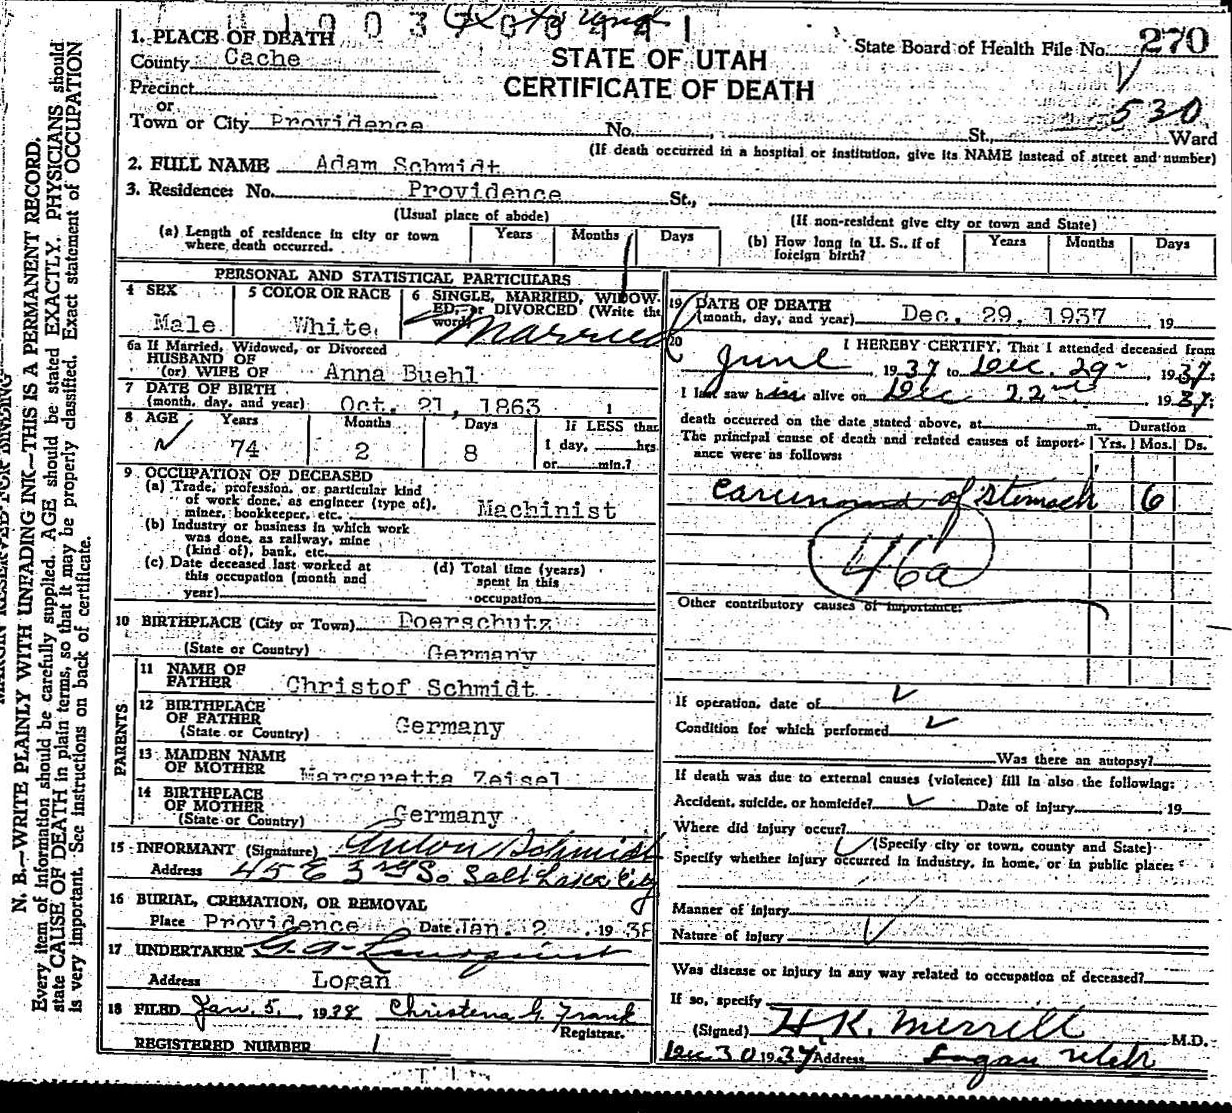 1. PLACE OF DEATH
County Cache
STATE OF UTAH
CERTIFICATE OF DEATH
State Board of Health File No. 270
Precinct
or
Town or City Providence No. , St., Ward
530
(If death occurred in a hospital or institution, give its NAME instead of street and number)
2. FULL NAME Adam Schmidt
3. Residence: No. Providence St.,
(Usual place of abode) (If non-resident give city or town and State)
(a) Length of residence in city or town where death occurred. Years Months Days
(b) How long in U. S., if of foreign birth? Years Months Days
PERSONAL AND STATISTICAL PARTICULARS
4 SEX Male
5 COLOR OR RACE White
6 SINGLE, MARRIED, WIDOWED, or DIVORCED (Write the word) Married
6a If Married, Widowed, or Divorced
HUSBAND OF
(or) WIFE OF Anna Buehl
7 DATE OF BIRTH
(month, day, and year) Oct. 21, 1863
8 AGE Years 74 Months 2 Days 8
If LESS than
1 day, hrs.
or min.?
9 OCCUPATION OF DECEASED
(a) Trade, profession, or particular kind
of work done, as engineer (type of),
miner, bookkeeper, etc. Machinist
(b) Industry or business in which work
was done, as railway, mine
(kind of), bank, etc.
(c) Date deceased last worked at
this occupation (month and
year)
(d) Total time (years)
spent in this
occupation
10 BIRTHPLACE (City or Town) Doerschutz
(State or Country) Germany
PARENTS
11 NAME OF
FATHER Christof Schmidt
12 BIRTHPLACE
OF FATHER
(State or Country) Germany
13 MAIDEN NAME
OF MOTHER Margaretta Zeisel
14 BIRTHPLACE
OF MOTHER
(State or Country) Germany
15 INFORMANT (Signature) Anton Schmidt
Address 45 E 3rd So. Salt Lake City
16 BURIAL, CREMATION, OR REMOVAL
Place Providence Date Jan. 2 , 1938
17 UNDERTAKER
Address Logan
18 FILED Jan. 5, 1938 Christena G. Frank
Registrar.
REGISTERED NUMBER 1
19 DATE OF DEATH
(month, day, and year) Dec. 29, 1937 , 19
20 I HEREBY CERTIFY, That I attended deceased from
June , 1937 to Dec. 29 , 1937.
I last saw him alive on Dec 22nd , 1937;
death occurred on the date stated above, at m.
Duration
The principal cause of death and related causes of importance were as follows: Yrs. Mos. Ds.
Carcinoma of stomach 6
46a
Other contributory causes of importance:
If operation, date of
Condition for which performed
Was there an autopsy?
If death was due to external causes (violence) fill in also the following:
Accident, suicide, or homicide? Date of injury 19
Where did injury occur?
(Specify city or town, county and State)
Specify whether injury occurred in industry, in home, or in public place:
Manner of injury
Nature of injury
Was disease or injury in any way related to occupation of deceased?
If so, specify
(Signed) H K. Merrill M.D.
Dec 30 1937 Address Logan Utah
N. B.—WRITE PLAINLY WITH UNFADING INK—THIS IS A PERMANENT RECORD.
Every item of information should be carefully supplied. AGE should be stated EXACTLY. PHYSICIANS should
state CAUSE OF DEATH in plain terms, so that it may be properly classified. Exact statement of OCCUPATION
is very important. See instructions on back of certificate.